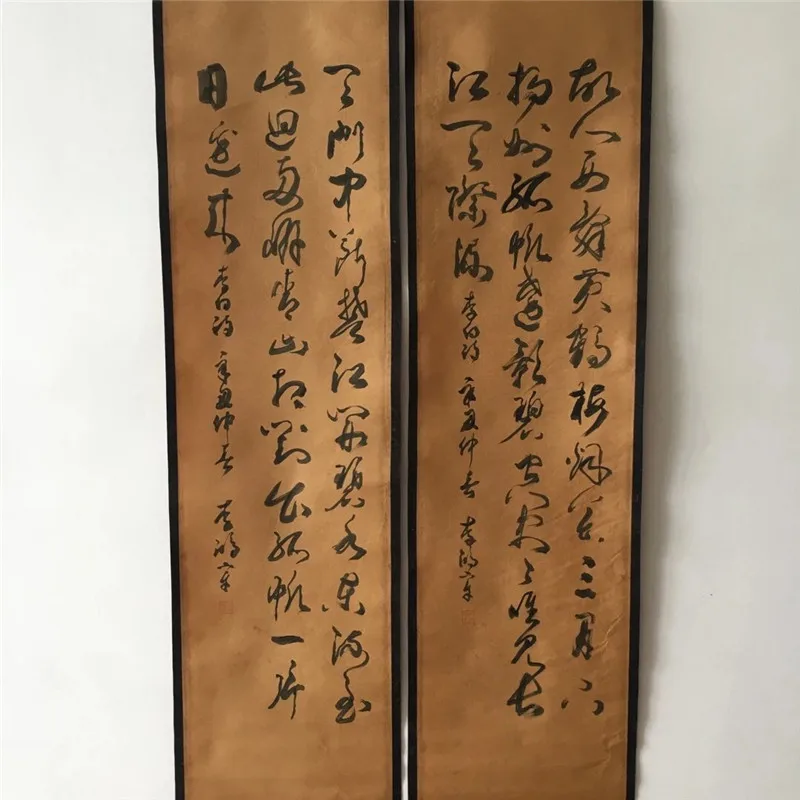 故人西辭黃鶴樓煙花三月下
揚州孤帆遠影碧空盡唯見長
江天際流 李白詩 辛丑仲春 李
天門中斷楚江開碧水東流至
此迴兩岸青山相對出孤帆一片
日邊來 李白詩 辛丑仲春 李